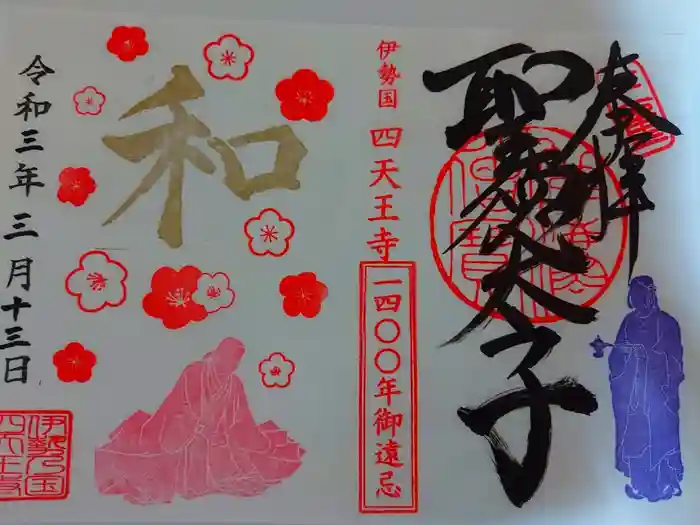 奉拝
聖徳太子
伊勢国 四天王寺
一四〇〇年御遠忌
和
令和三年三月十三日
伊勢乃国
四天王寺